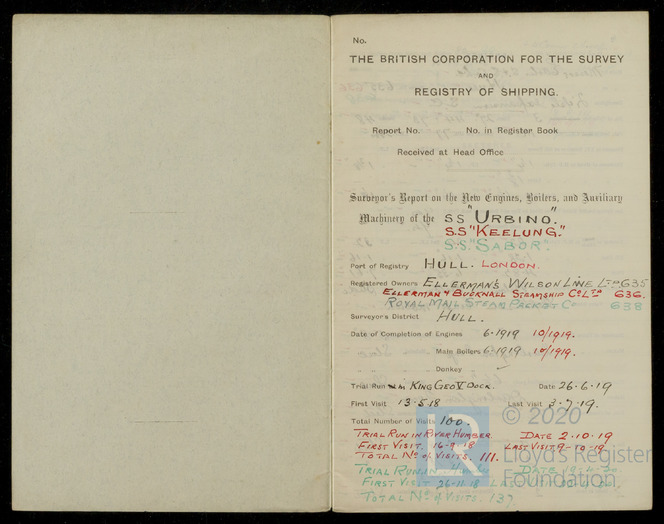 No.
THE BRITISH CORPORATION FOR THE SURVEY
AND
REGISTRY OF SHIPPING.
Report No. No. in Register Book
Received at Head Office
Surveyor's Report on the New Engines, Boilers, and Auxiliary
Machinery of the SS "URBINO".
S.S "KEELUNG."
S.S. "SABOR".
Port of Registry HULL. LONDON.
Registered Owners ELLERMAN'S WILSON LINE LTD 635
ELLERMAN & BUCKNALL STEAMSHIP CO LTD 636.
ROYAL MAIL STEAM PACKET CO 638
Surveyor's District HULL.
Date of Completion of Engines 6-1919 10/1919.
" " Main Boilers 6-1919 10/1919.
" " Donkey
Trial Run in KING GEO V DOCK. Date 26-6-19
First Visit 13-5-18 Last Visit 3-7-19.
Total Number of Visits 100.
TRIAL RUN IN RIVER HUMBER. DATE 2-10-19
FIRST VISIT. 16-9-18 LAST VISIT 9-10-19
TOTAL NO of VISITS. 111.
TRIAL RUN IN DATE
FIRST VISIT 26-11-18 LAST
TOTAL NO of VISITS. 137
© 2020
Lloyd's Register
Foundation
LR